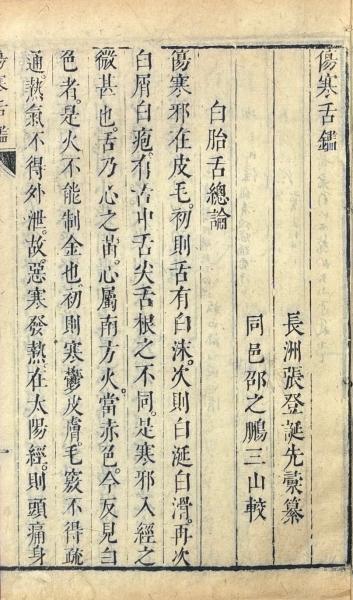 傷寒舌鑑
長洲張登誕先彙纂
同邑邵之鵬三山較
白胎舌總論
傷寒邪在皮毛。初則舌有白沫。次則白涎白滑。再次
白屑白疱。有舌中舌尖舌根之不同。是寒邪入經之
微甚也。舌乃心之苗。心屬南方火。當赤色。今反見白
色者。是火不能制金也。初則寒鬱皮膚。毛竅不得疏
通。熱氣不得外泄。故惡寒發熱。在太陽經。則頭痛身
傷寒舌鑑
一